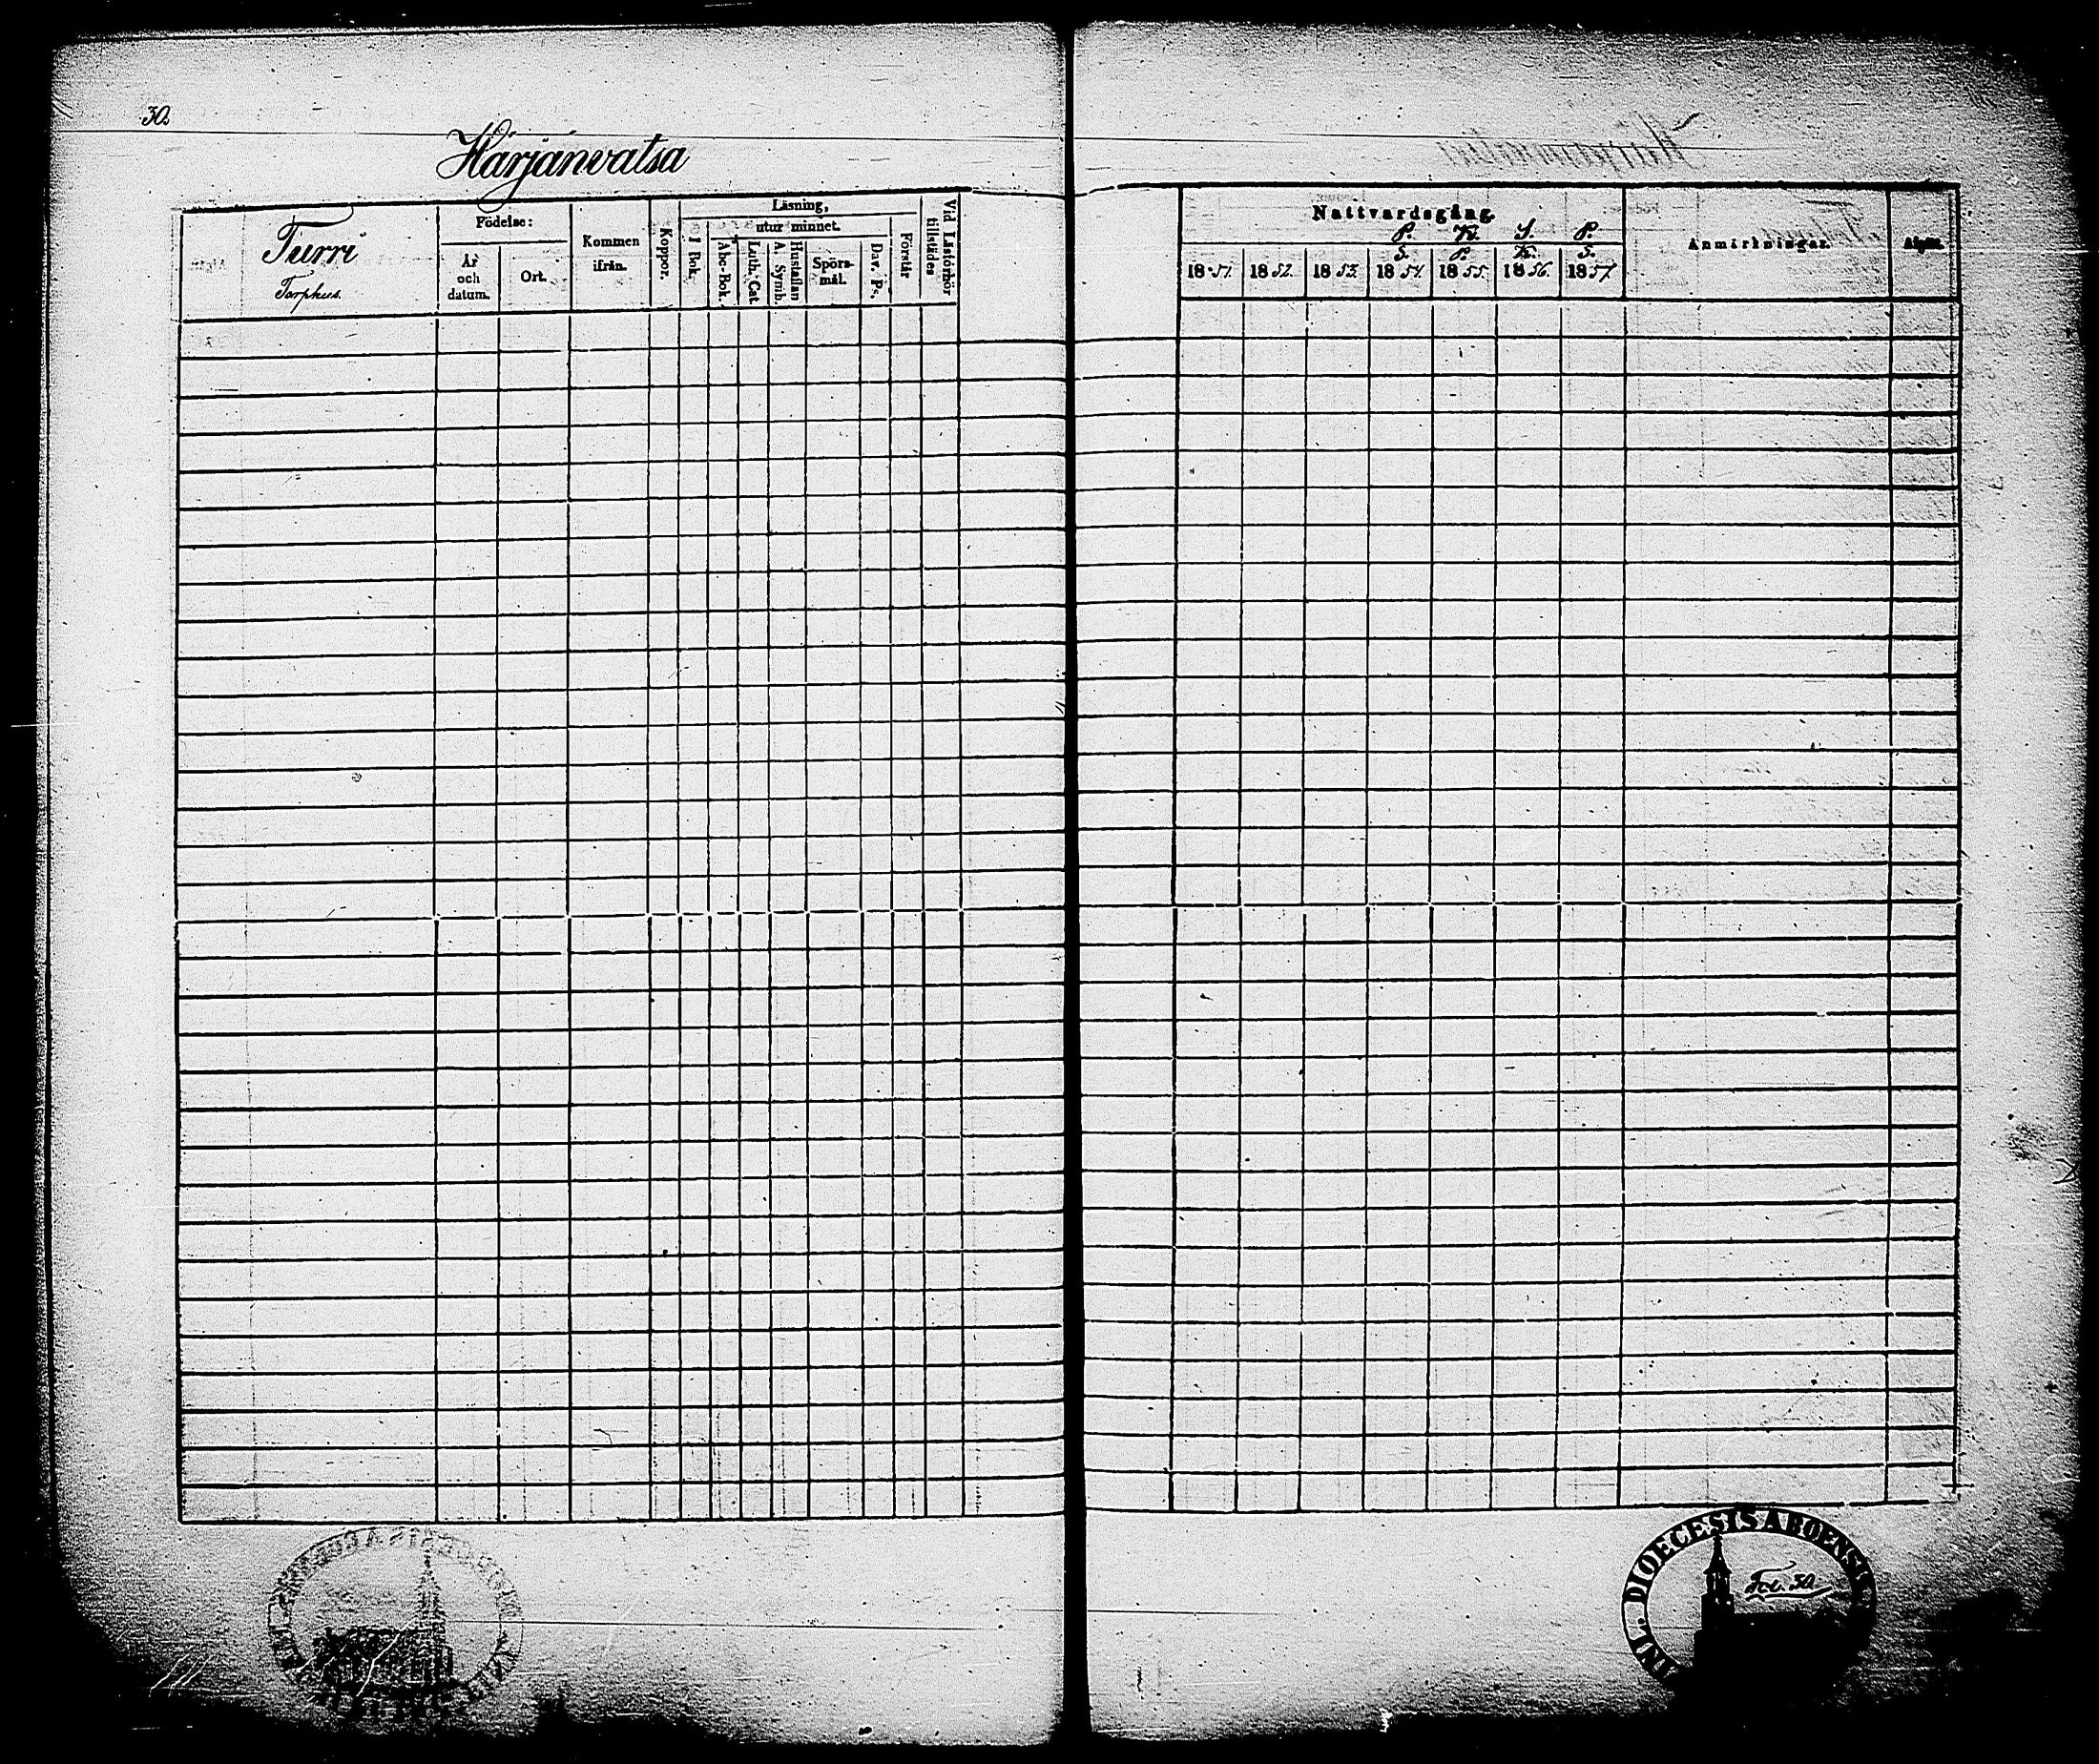 30.
Härjänvatsa
Turri
Torphus.
Födelse:
År och datum.
Ort.
Kommen ifrån.
Koppor.
Läsning,
utur minnet.
I Bok.
Abc-Bok.
Luth. Cat
Hustaflan A. Symb.
Spörsmål.
Dav. Ps.
Förstår
Vid Läsförhör tillstädes
Nattvardsgång.
P. K. S. P.
S. P. K. S.
1851. 1852. 1853. 1854. 1855. 1856. 1857
Anmärkningar.
Afgått.
DIOECESIS ABOENSIS
Fol. 30.